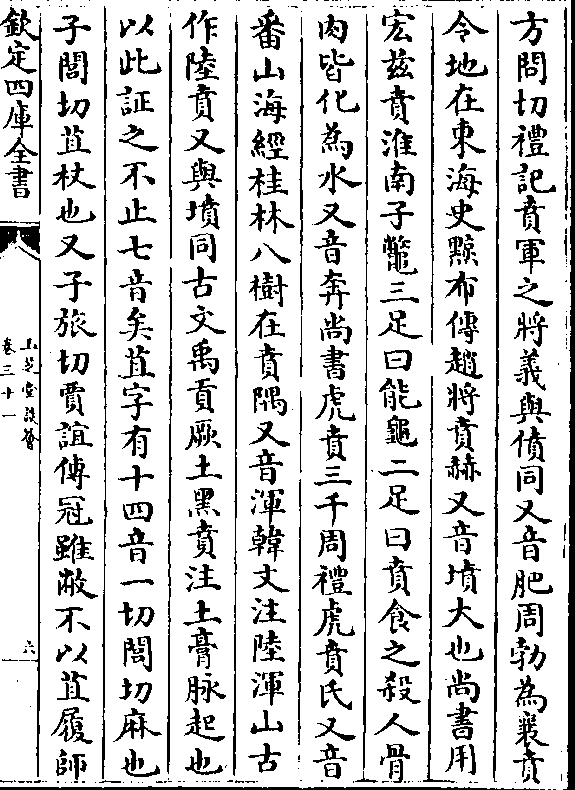 方問切禮記賁軍之將義與僨同又音肥周勃為襄賁
令地在東海史黥布傳趙將賁赫又音墳大也尚書用
宏兹賁淮南子鼈三足曰能龜二足曰賁食之殺人骨
肉皆化為水又音奔尚書虎賁三千周禮虎賁氏又音
番山海經桂林八樹在賁隅又音渾韓文注陸渾山古
作陸賁又與墳同古文禹貢厥土黑賁注土膏脉起也
以此証之不止七音矣苴字有十四音一切閭切麻也
子閭切苴杖也又子旅切賈誼傳冠雖敝不以苴履師
欽定四庫全書
玉芝堂談薈
卷三十一
六